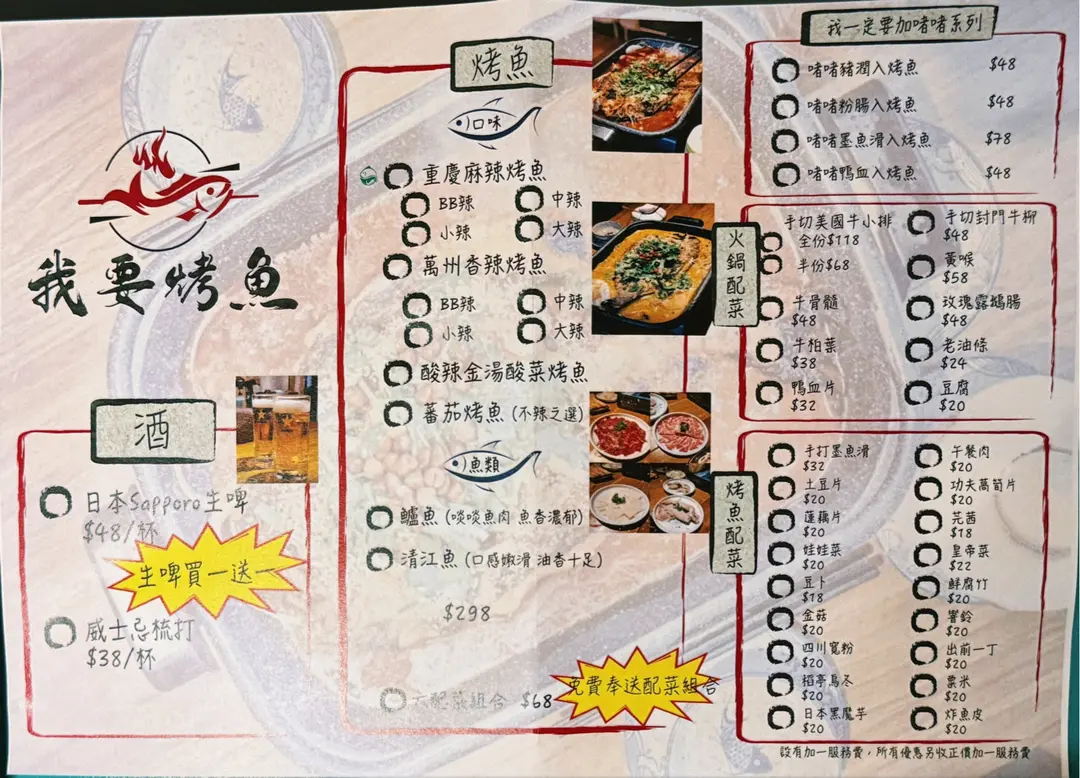 我要烤魚
酒
日本Sapporo生啤
$48/杯
生啤買一送一
威士忌梳打
$38/杯
烤魚
口味
重慶麻辣烤魚
BB辣
中辣
小辣
大辣
萬州香辣烤魚
BB辣
中辣
小辣
大辣
酸辣金湯酸菜烤魚
蕃茄烤魚 (不辣之選)
魚類
鱸魚 (啖啖魚肉 魚香濃郁)
清江魚 (口感嫩滑 油香十足)
$298
配菜組合 $68
免費奉送配菜組合
我一定要加啫啫系列
啫啫豬潤入烤魚 $48
啫啫粉腸入烤魚 $48
啫啫墨魚滑入烤魚 $78
啫啫鴨血入烤魚 $48
火鍋配菜
手切美國牛小排
全份$118
半份$68
牛骨髓
$48
牛柏葉
$38
鴨血片
$32
手切封門牛柳
$48
黃喉
$58
玫瑰露鵝腸
$48
老油條
$24
豆腐
$20
烤魚配菜
手打墨魚滑
$32
土豆片
$20
蓮藕片
$20
娃娃菜
$20
豆卜
$18
金菇
$20
四川寬粉
$20
稻亭烏冬
$20
日本黑魔芋
$20
午餐肉
$20
功夫萵筍片
$20
芫茜
$18
皇帝菜
$22
鮮腐竹
$20
響鈴
$20
出前一丁
$20
粟米
$20
炸魚皮
$20
設有加一服務費，所有優惠另收正價加一服務費